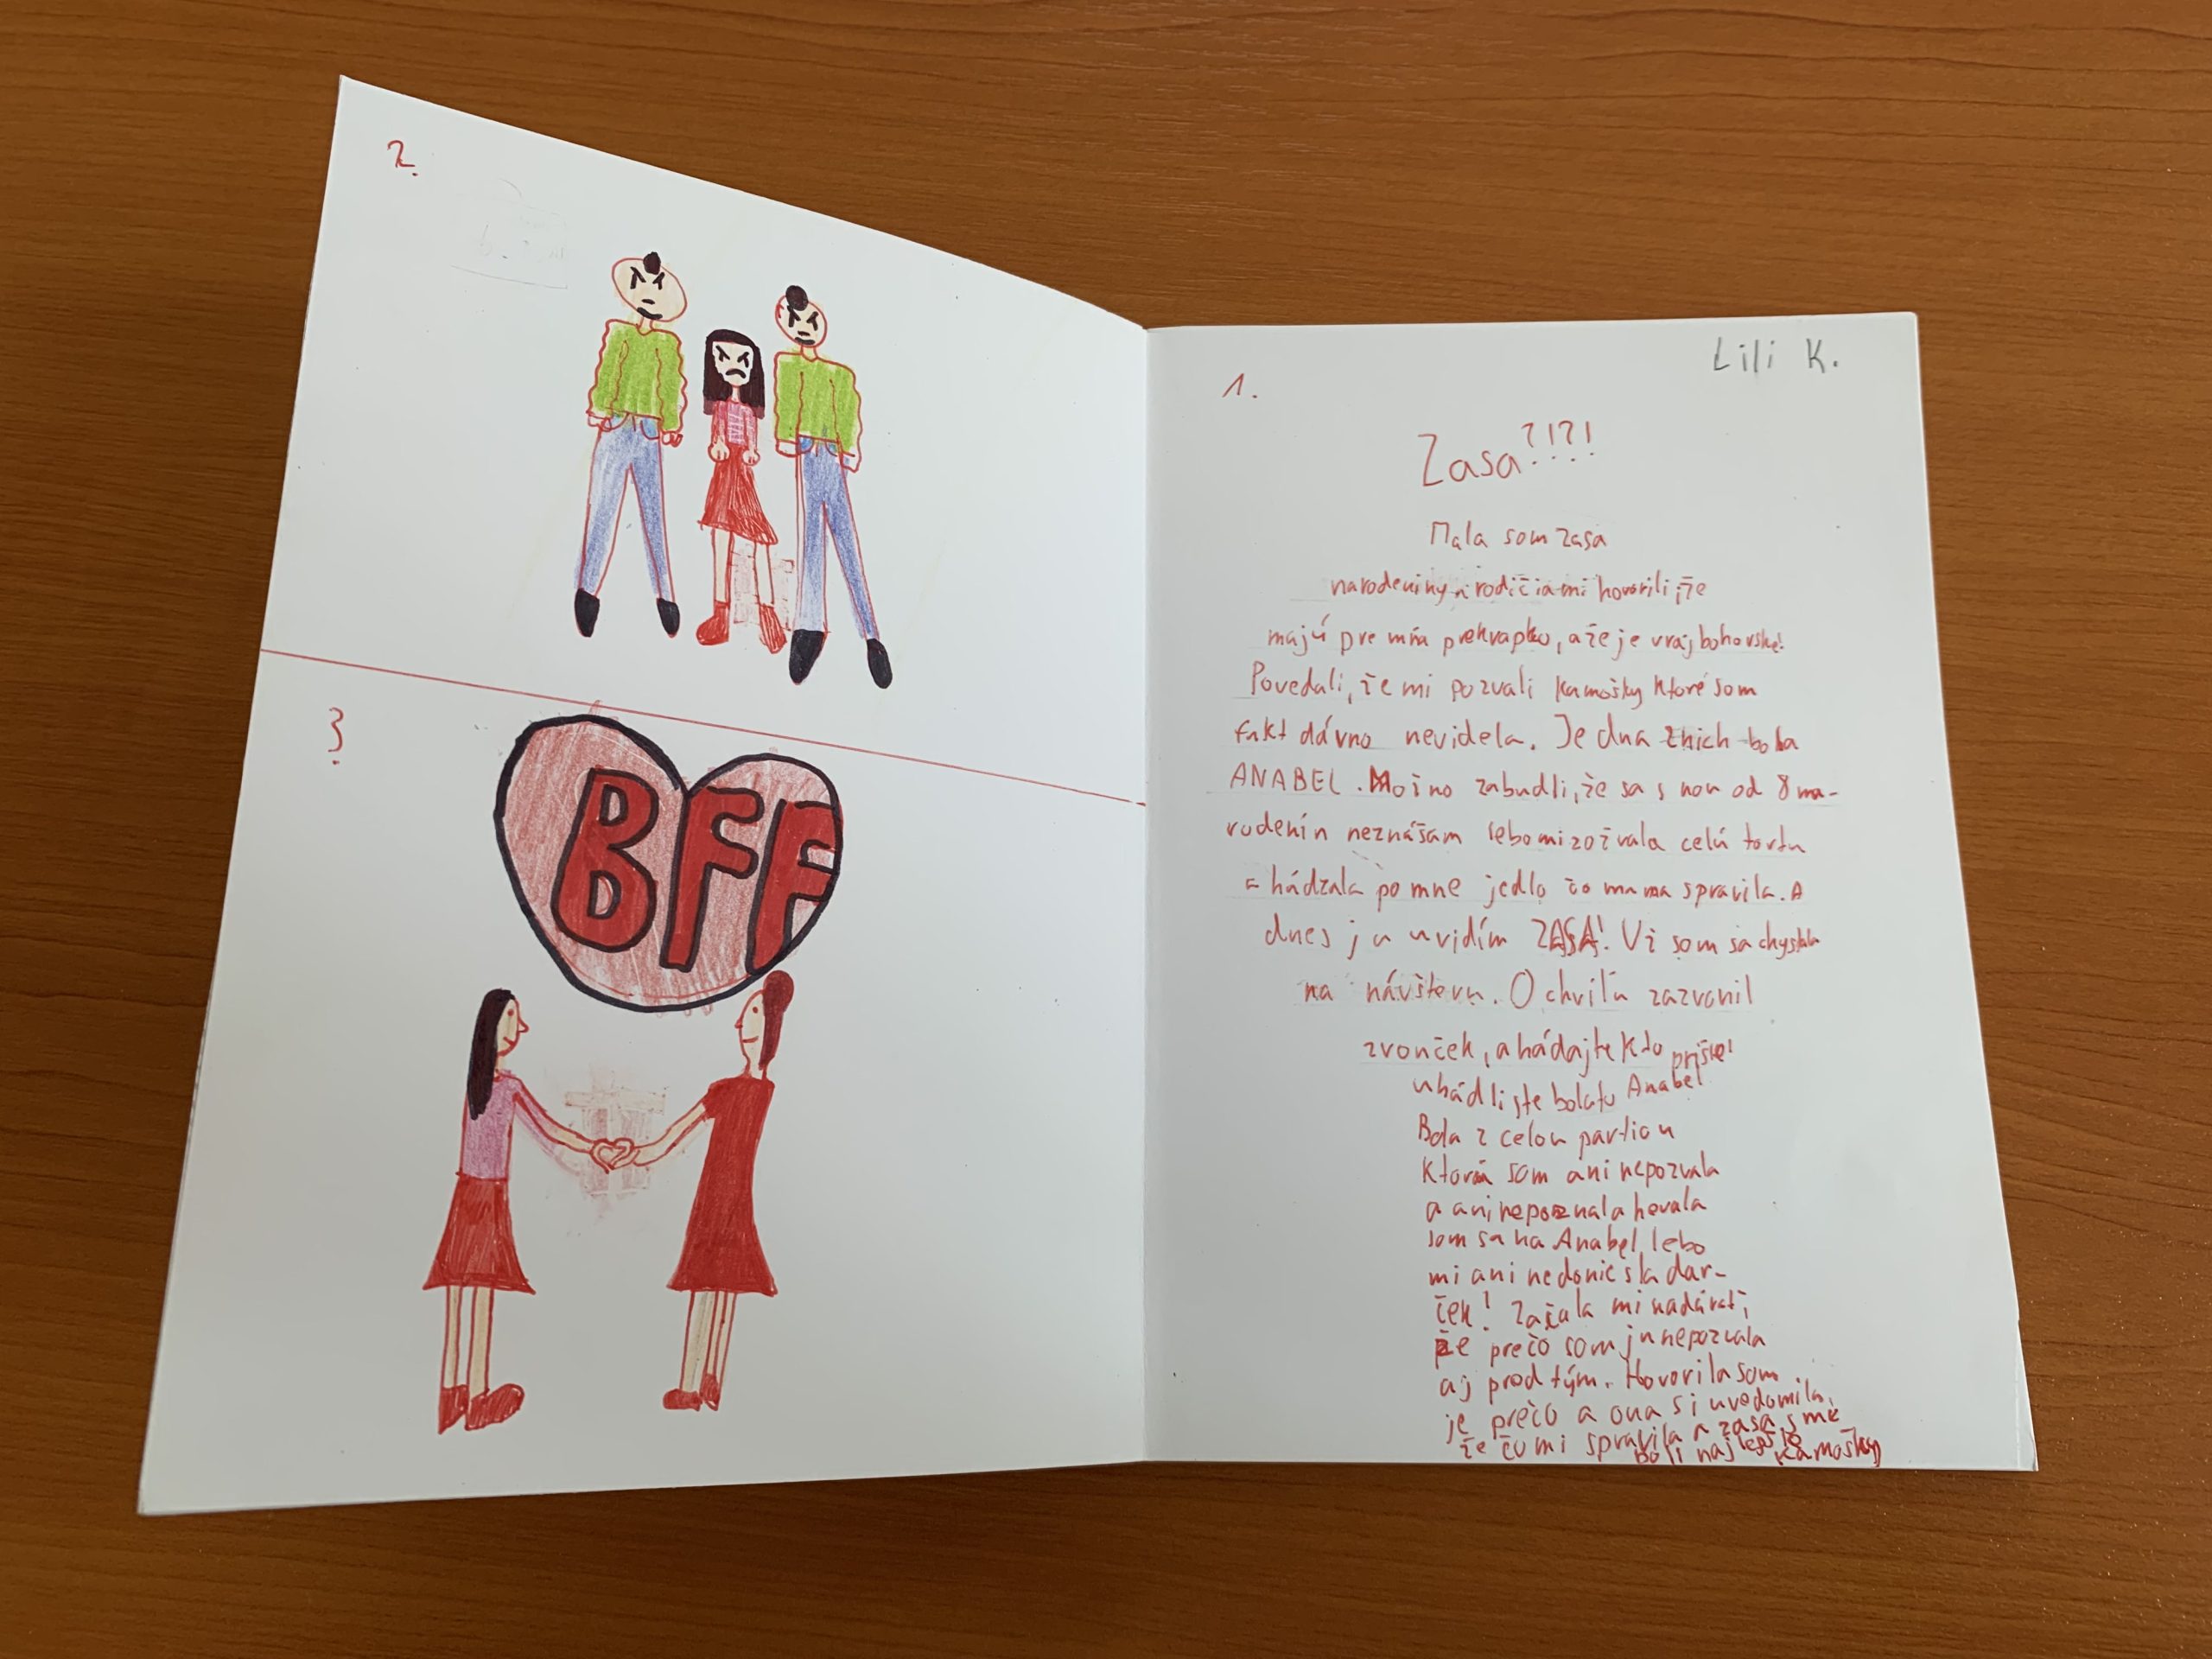 2.
3.
BFF
Lili K.
1.
Zasa?!?!
Mala som zasa
narodeniny a rodičia mi hovorili, že
majú pre mňa prekvapko, a že je vraj bohovské!
Povedali, že mi pozvali kamošky ktoré som
fakt dávno nevidela. Jedna znich bola
ANABEL. Možno zabudli, že sa s nou od 8 na-
rodenín neznášam lebo mi zožrala celú tortu
a hádzala po mne jedlo čo mama spravila. A
dnes ju uvidím ZASA! Už som sa chystala
na návštevu. O chvíľu zazvonil
zvonček, a hádajte kto prišiel
uhádli ste bola to Anabel
Bola z celou partiou
ktorú som ani nepozvala
a ani nepoznala hevala
som sa na Anabel lebo
mi ani nedoniesla dar-
ček! Začala mi nadávať,
že prečo som ju nepozvala
aj pred tým. Hovorila som
je prečo a ona si uvedomila,
že čo mi spravila a zasa sme
boli najlepšie kamošky